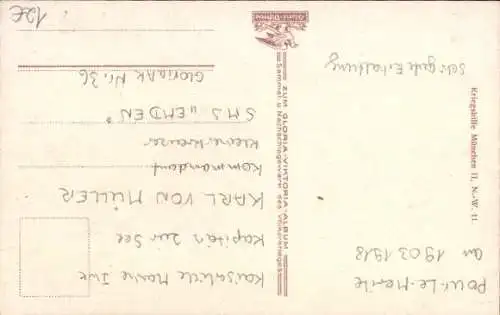 12€
Kaiserliche Marine
Kapitän zur See
KARL VON MÜLLER
Kommandant
Kleiner Kreuzer
SMS "EMDEN"
Gloriaak Nr. 36
ZUM GLORIA-VIKTORIA-ALBUM
Sammel- u. Nachschlagewerk des Völkerkrieges
Pour-Le-Merite
am 19.03.1918
sehr gute Erhaltung
Kriegshilfe München II, N.-W. 11.